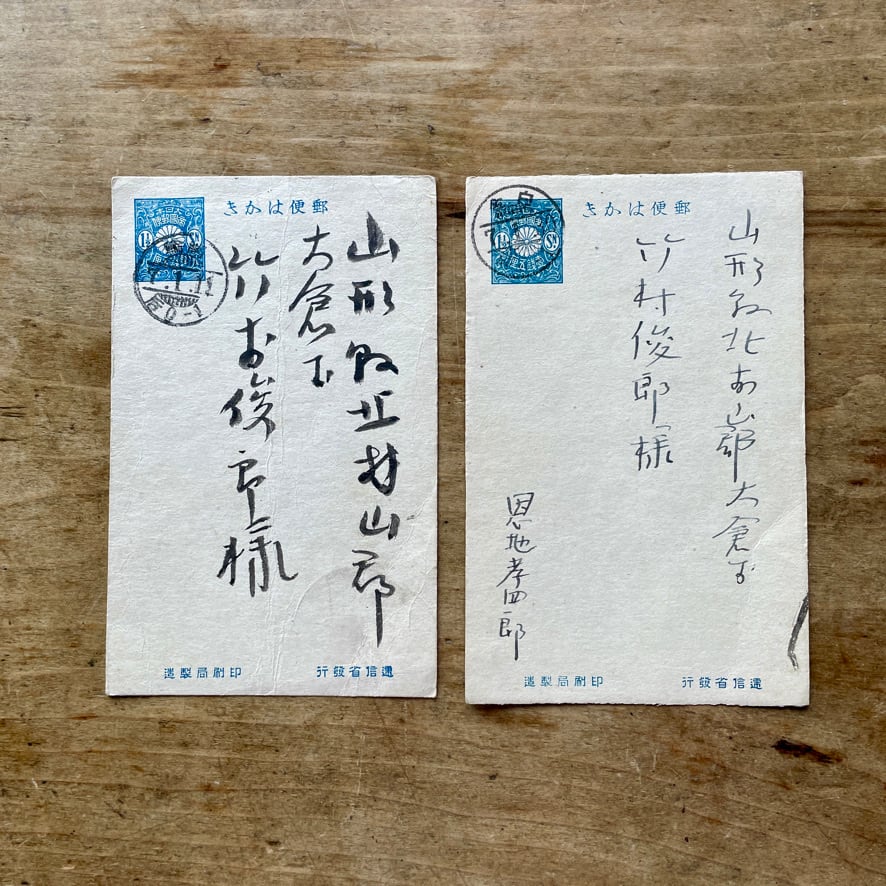 郵便はかき
山形縣北村山郡
大倉村
竹村俊郎様
逓信省發行
印刷局製造
郵便はかき
山形縣北村山郡大倉村
竹村俊郎様
恩地孝四郎
逓信省發行
印刷局製造